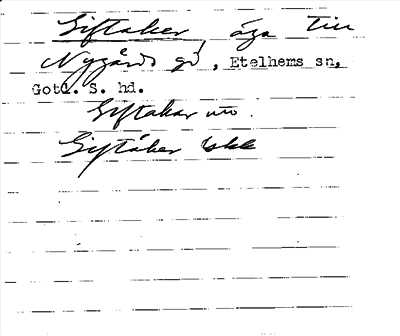 Giftaker, äga till
Nygårds gd, Etelhems sn,
Gotl. S. hd.
Giftakar
Giftåker